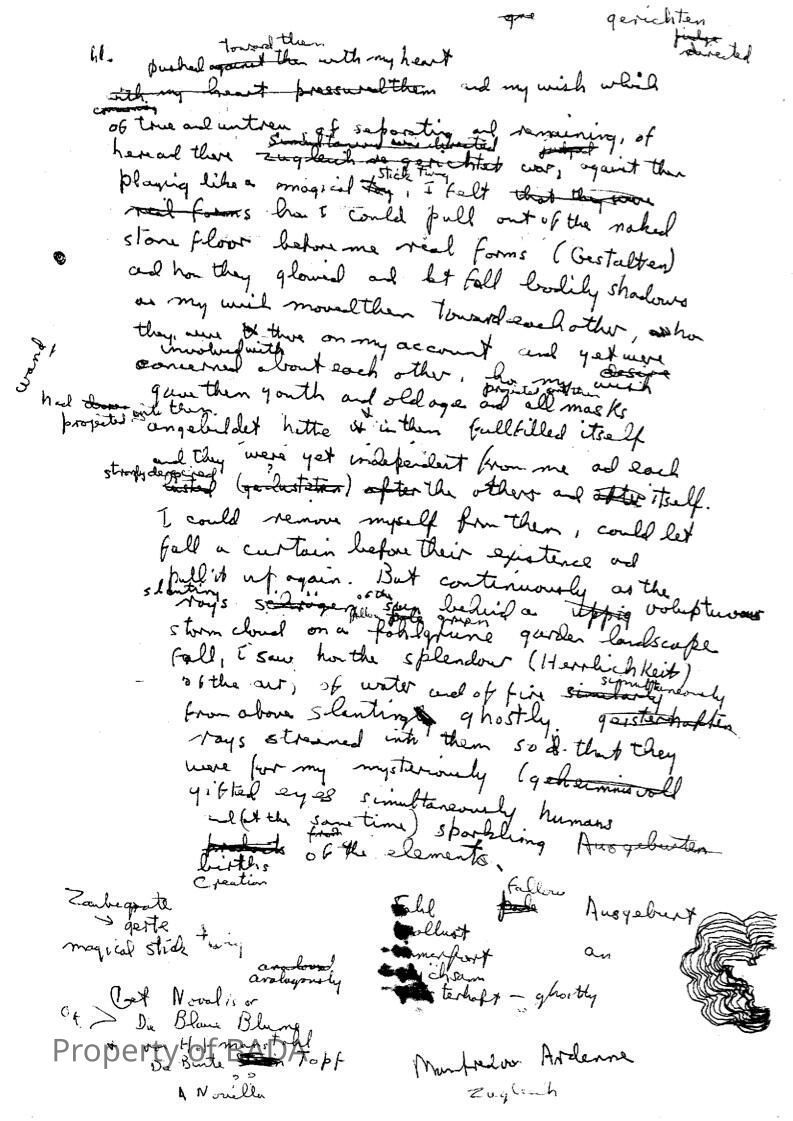 gerichten
directed
toward them
pushed against them with my heart
with my heart pressured them and my wish which
of true and untrue of separating and remaining, of
simultaneous were directed
here and there zugleich so gerichtet war, against them
stick twig
playing like a magical toy, I felt that they were
real forms how I could pull out of the naked
stone floor before me real forms (Gestalten)
and how they glowed and let fall bodily shadows
as my wish moved them toward each other, how
they were there on my account and yet were
involved with
concerned about each other, how my wish
desire
wand
gave them youth and old age and all masks
had projected into them
angebildet hätte in them fullfilled itself
and they were yet independent from me and each
strongly desired
lusted after the others and after itself.
I could remove myself from them, could let
fall a curtain before their existence and
pull it up again. But continuously as the
slanting
rays of the sun behind a üppig voluptuous
storm cloud on a fahlgrüne garden landscape
fallow green
fall, I saw how the splendour (Herrlichkeit)
simultaneously
of the air, of water and of fire similarly
from above slanting ghostly geisterhaften
rays streamed into them so that they
were for my mysteriously (geheimnisvoll
gifted eyes simultaneously humans
and (at the same time) sparkling Ausgeburten
products from
births of the elements.
creation
gerte
magical stick twig
Fallow
pale
Ausgeburt
an
analogously
Get Novalis or
Die Blaue Blume
or
Die Bunte Topf
A Novella
terhaft – ghostly
Manfred von Ardenne
Zugleich
Property of BADA